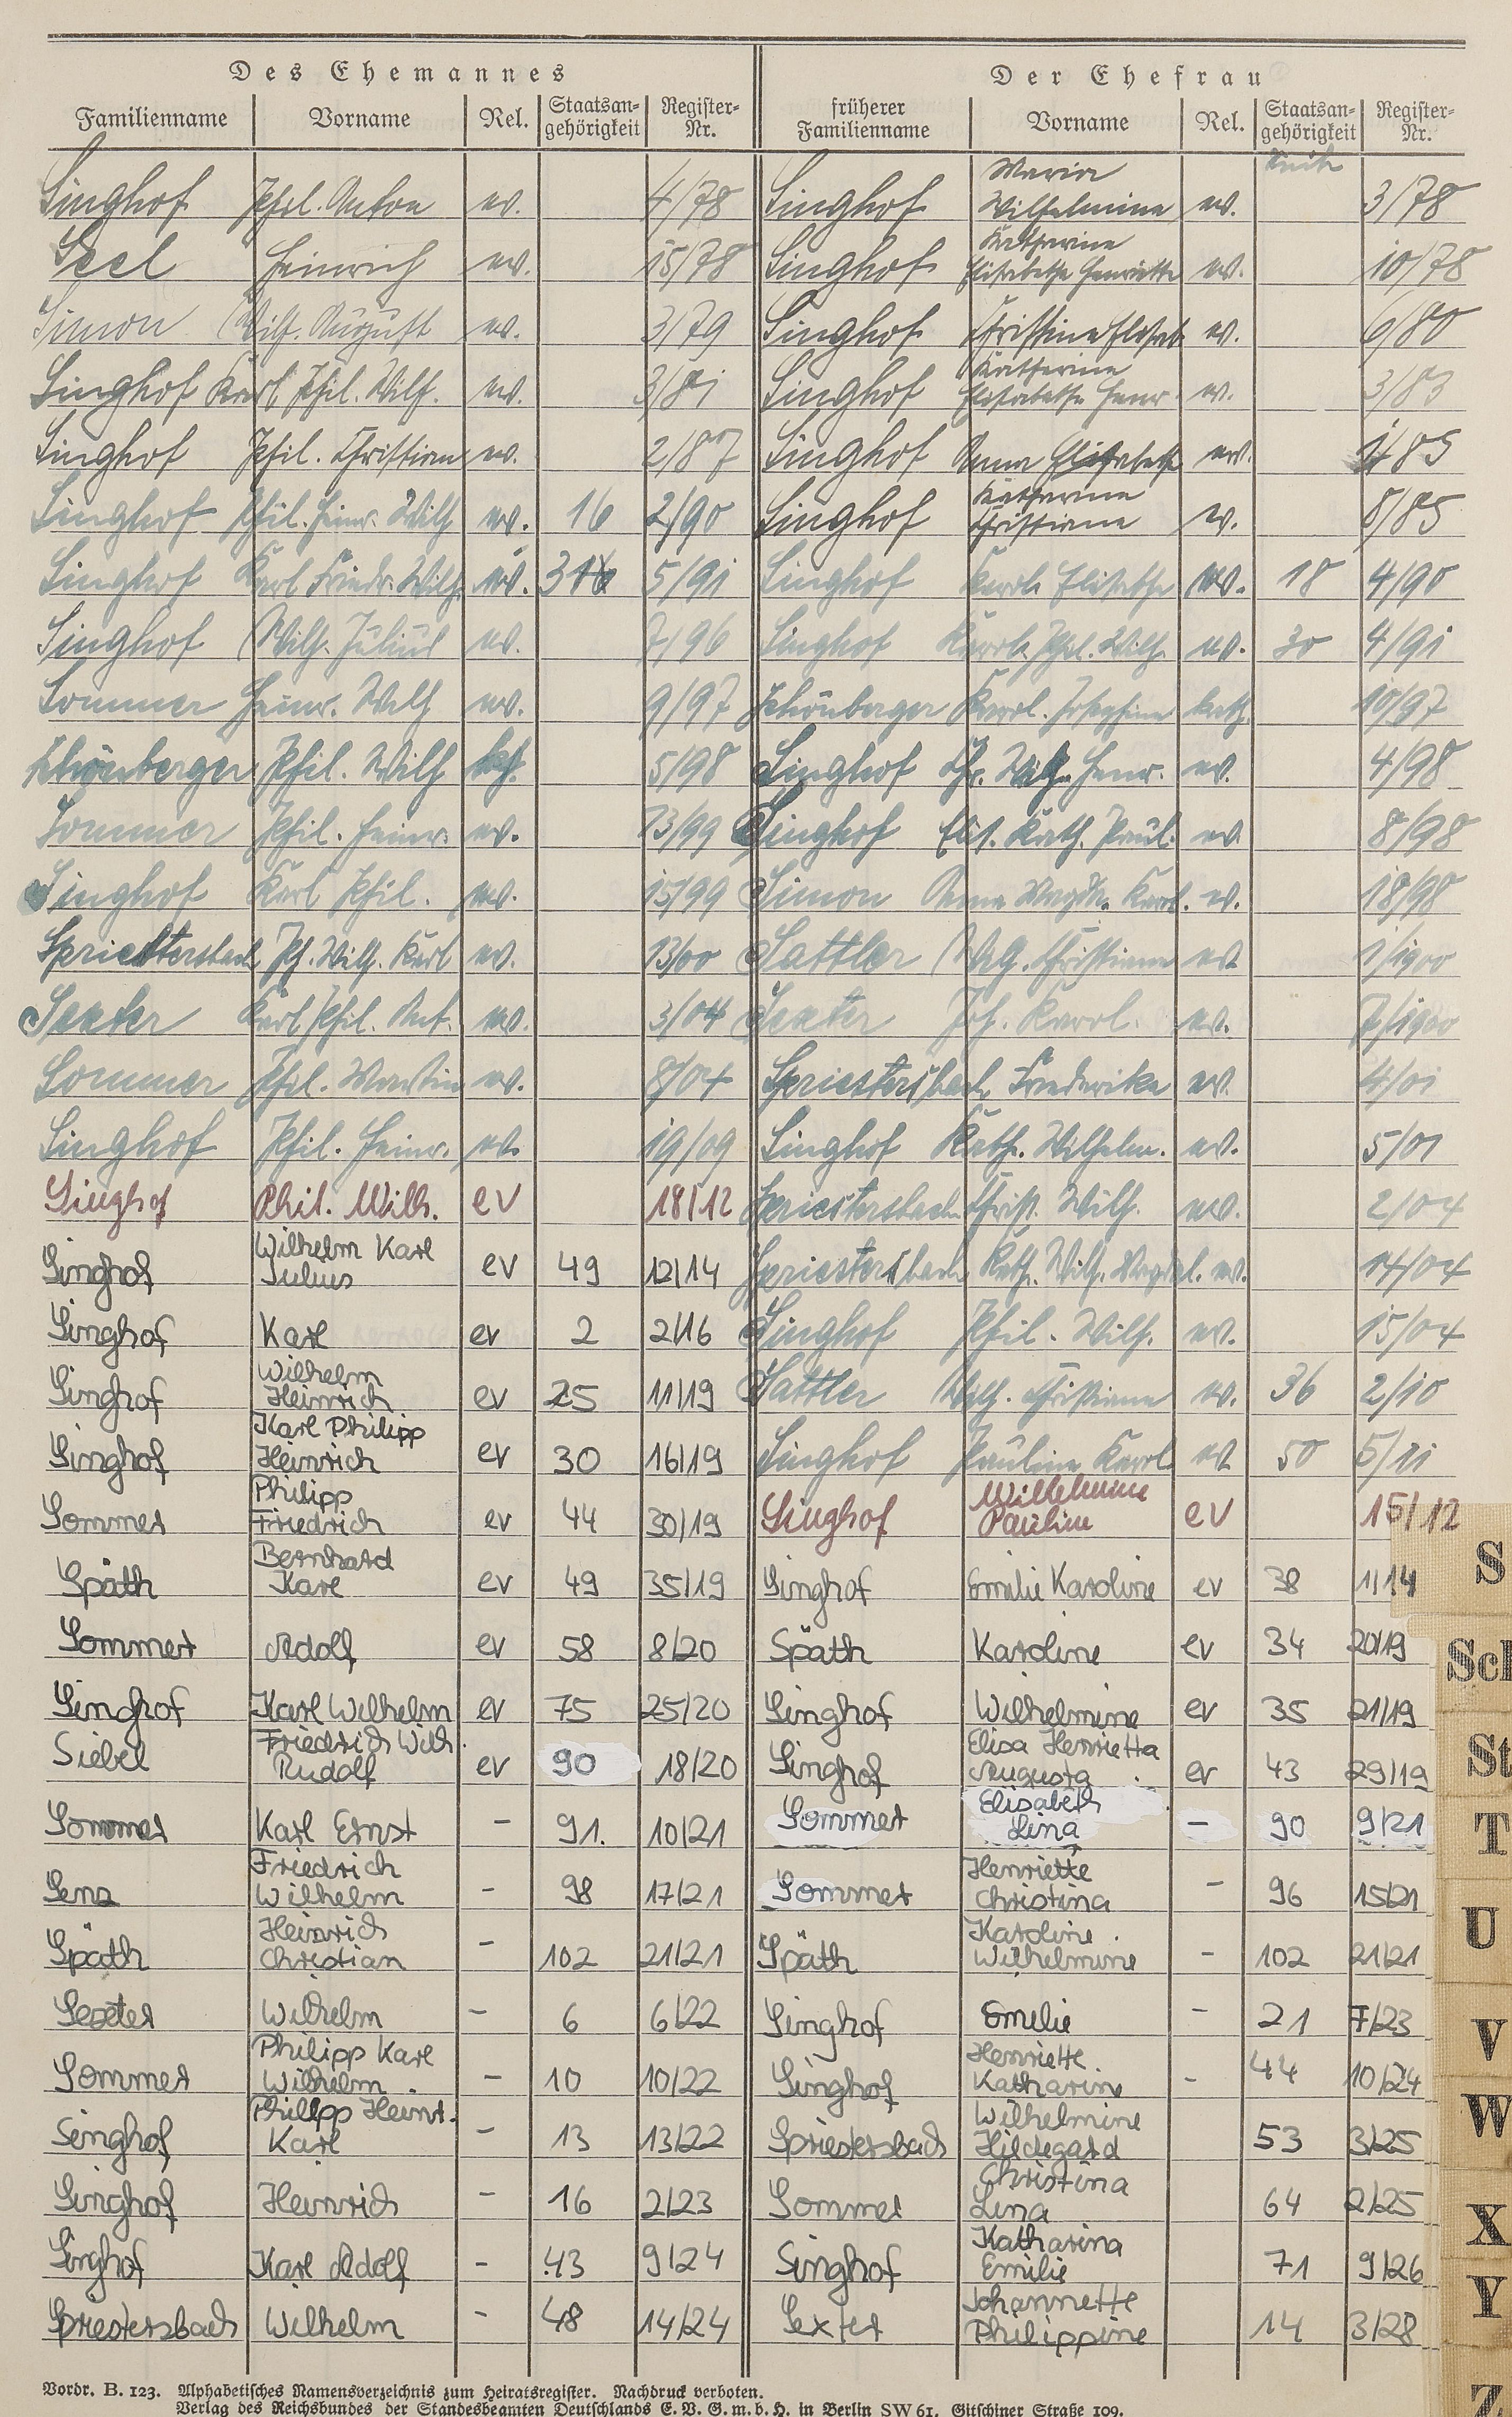 Des Ehemannes Der Ehefrau
Familienname Vorname Rel. Staatsan-gehörigkeit Register-Nr. früherer Familienname Vorname Rel. Staatsan-gehörigkeit Register-Nr.
Singhof Phil. Anton ev. 4/78 Singhof Maria Wilhelmine ev. 3/78
Seel Heinrich ev. 15/78 Singhof Katharine Elisabethe Henriette ev. 10/78
Simon Wilh. August ev. 3/79 Singhof Christine Elisab ev. 6/80
Singhof Karl Phil. Wilh. ev. 3/81 Singhof Katharine Elisabethe Henr. ev. 3/83
Singhof Phil. Christian ev. 2/87 Singhof Anna Elisabeth ev. /85
Singhof Phil. Heinr. Wilh ev. 16 2/90 Singhof Katharine Christiane ev. 8/85
Singhof Karl Friedr. Wilh. ev. 5/91 Singhof Karol. Elisabethe ev. 18 4/90
Singhof Wilh. Julius ev. 7/96 Singhof Karol. Phil. Wilh. ev. 30 4/91
Sommer Heinr. Wilh ev. 9/97 Schönberger Karol. Josephine kath. 10/97
Schönberger Phil. Wilh kath. 5/98 Singhof Chr. Wilh. Henr. ev. 4/98
Sommer Phil. Heinr. ev. 13/99 Singhof Elis. Kath. Paul. ev. 8/98
Singhof Karl Phil. ev. 15/99 Simon Anna Magda. Karol. ev. 18/98
Spriestersbach Ph. Wilh. Karl ev. 13/00 Sattler Wilh. Christiane ev. 1/1900
Sexter Karl Phil. Ant. ev. 3/04 Sexter Joh. Karol. ev. 7/1900
Sommer Phil. Martin ev. 8/04 Spriestersbach Friederike ev. 4/01
Singhof Phil. Heinr. ev. 19/09 Singhof Kath. Wilhelm. ev. 5/01
Singhof Phil. Wilh. ev 18/12 Spriestersbach Christ. Wilh. ev. 2/04
Singhof Wilhelm Karl Julius ev 49 12/14 Spriestersbach Kath. Wilh. Magdal. ev. 14/04
Singhof Karl ev 2 2/16 Singhof Phil. Wilh. ev. 15/04
Singhof Wilhelm Heinrich ev 25 11/19 Sattler Wilh. Christiane ev. 36 2/10
Singhof Karl Philipp Heinrich ev 30 16/19 Singhof Pauline Karol. ev. 50 5/11
Sommer Philipp Friedrich ev 44 30/19 Singhof Wilhelmine Pauline ev 15/12
Späth Bernhard Karl ev 49 35/19 Singhof Emilie Karoline ev 38 1/14
Sommer Adolf ev 58 8/20 Späth Karoline ev 34 20/19
Singhof Karl Wilhelm ev 75 25/20 Singhof Wilhelmine ev 35 21/19
Siebel Friedrich Wilh. Rudolf ev 90 18/20 Singhof Elisa Henrietta Augusta ev 43 29/19
Sommer Karl Ernst - 91. 10/21 Sommer Elisabeth Lina - 90 9/21
Senz Friedrich Wilhelm - 98 17/21 Sommer Henriette Christina - 96 15/21
Späth Heinrich Christian - 102 21/21 Späth Karoline Wilhelmine - 102 21/21
Sexter Wilhelm - 6 6/22 Singhof Emilie - 21 7/23
Sommer Philipp Karl Wilhelm - 10 10/22 Singhof Henriette Katharine - 44 10/24
Singhof Philipp Heinr. Karl - 13 13/22 Spriestersbach Wilhelmine Hildegard 53 3/25
Singhof Heinrich - 16 2/23 Sommer Christina Lina 64 2/25
Singhof Karl Adolf - 43 9/24 Singhof Katharina Emilie 71 9/26
Spriestersbach Wilhelm - 48 14/24 Sexter Johannette Philippine 14 3/28
S
Sch
St
T
U
V
W
X
Y
Z
Vordr. B. 123. Alphabetisches Namensverzeichnis zum Heiratsregister. Nachdruck verboten.
Verlag des Reichsbundes der Standesbeamten Deutschlands E. V. G. m. b. H. in Berlin SW 61, Gitschiner Straße 109.